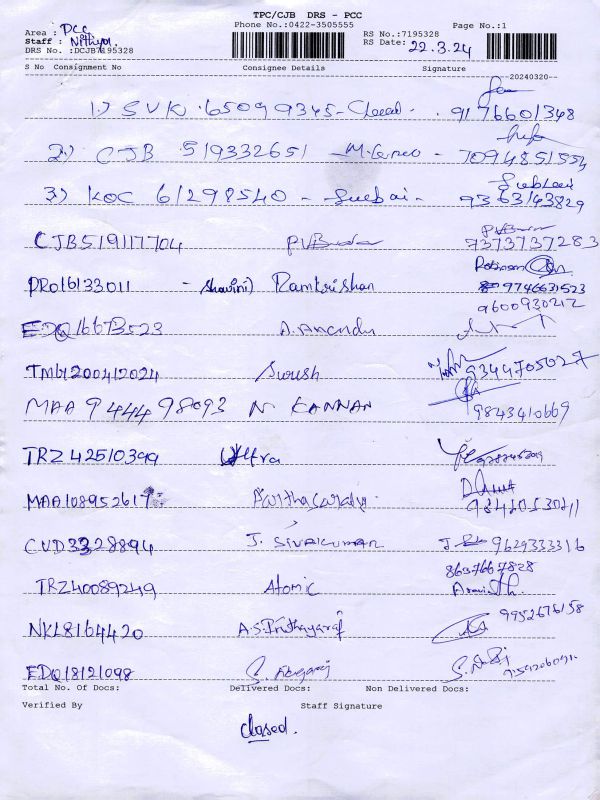 TPC/CJB DRS - PCC
Phone No.:0422-3505555
Page No.:1
Area : PCC
Staff : Nithya.
DRS No. :DCJB7195328
RS No.:7195328
RS Date: 22.3.24
S No Consignment No Consignee Details Signature
--20240320--
1.) SVK 65099345 - 9176601348
2.) CJB 519332651 - 7094851554
3.) KOC 61298540 - 9363143829
CJB519117704 9373737283
PRO16133011 - Ramkrishan 9746631523
9600930212
EDQ16673523 A. Anandu
TMB1200412024 Suresh 9344705027
MAA 944498093 N KANNAN 9843410669
TRZ 42510399 Ultra
MAA108952617
CVD3328894 J. SIVAKUMAR 9629333316
TRZ40089249 Atomic 8637667828
Aravinth.
NKL8164420 A.S. Prithayaraj 9952676158
EDQ18121098
Total No. Of Docs: Delivered Docs: Non Delivered Docs:
Verified By Staff Signature
closed.